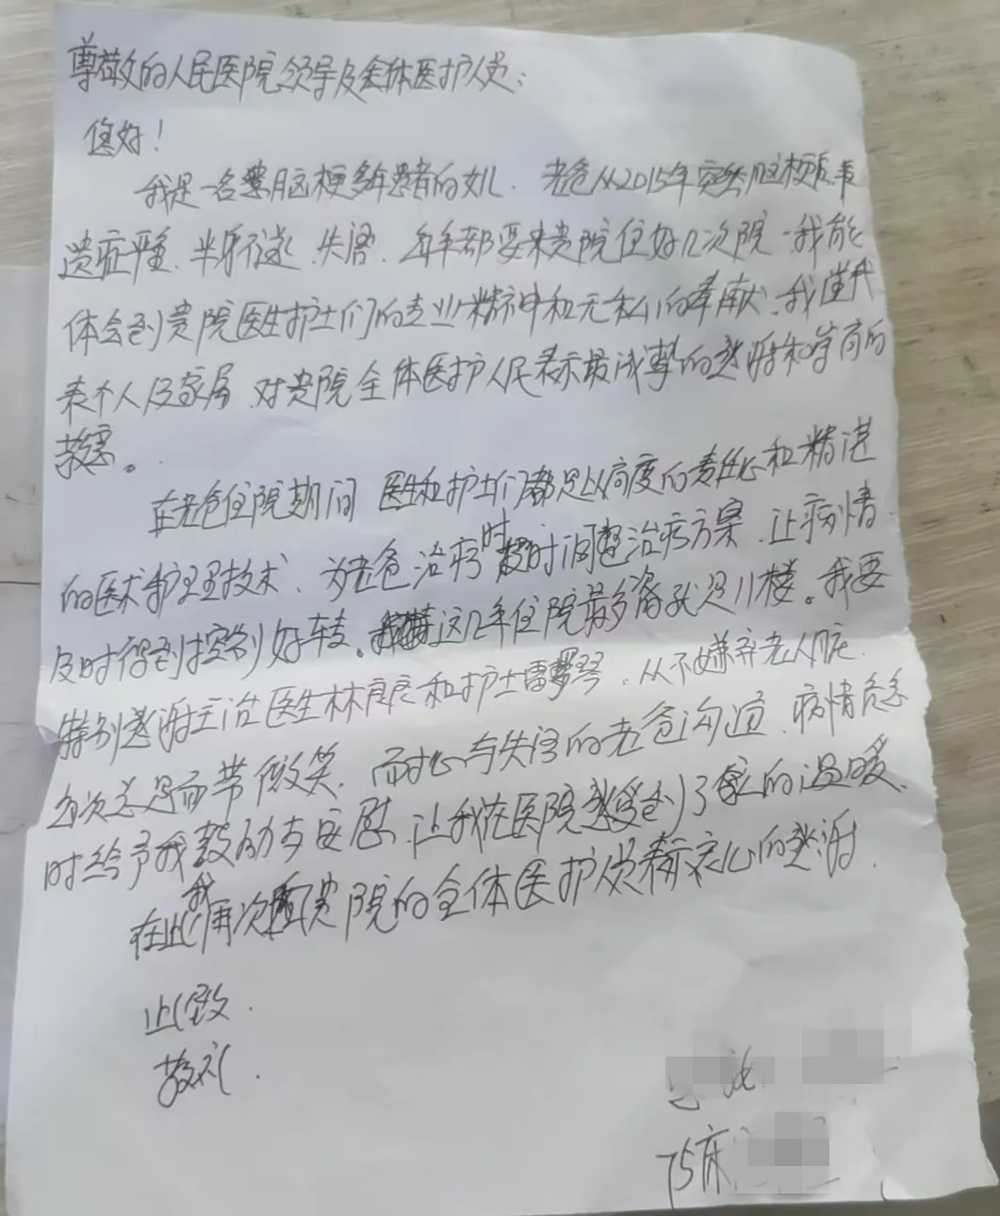 尊敬的人民医院领导及全体医护人员：
您好！
我是一名患脑梗多年患者的女儿．老爸从2015年突然脑梗后
遗症严重．半身不遂．失语．每年都要来贵院住好几次院．我能
体会到贵院医生护士们的专业精神和无私的奉献．我谨代
表个人及家属．对贵院全体医护人民表示最诚挚的感谢和崇高的
敬意。
在老爸住院期间 医生和护士们都是以高度的责任心和精湛
的医术护理技术．为老爸治病时 时调整治疗方案．让病情
及时得到控制好转。这几年住院最多次就是11楼。我要
特别感谢主治医生林良 和护士雷梦琴．从不嫌弃老人脏．
每次总是面带微笑．耐心与失语的老爸沟通．病情危急
时给予我鼓励与安慰．让我在医院感受到了家的温暖．
在此我再次 贵院的全体医护人员表示衷心的感谢．
此致．
敬礼．
75床